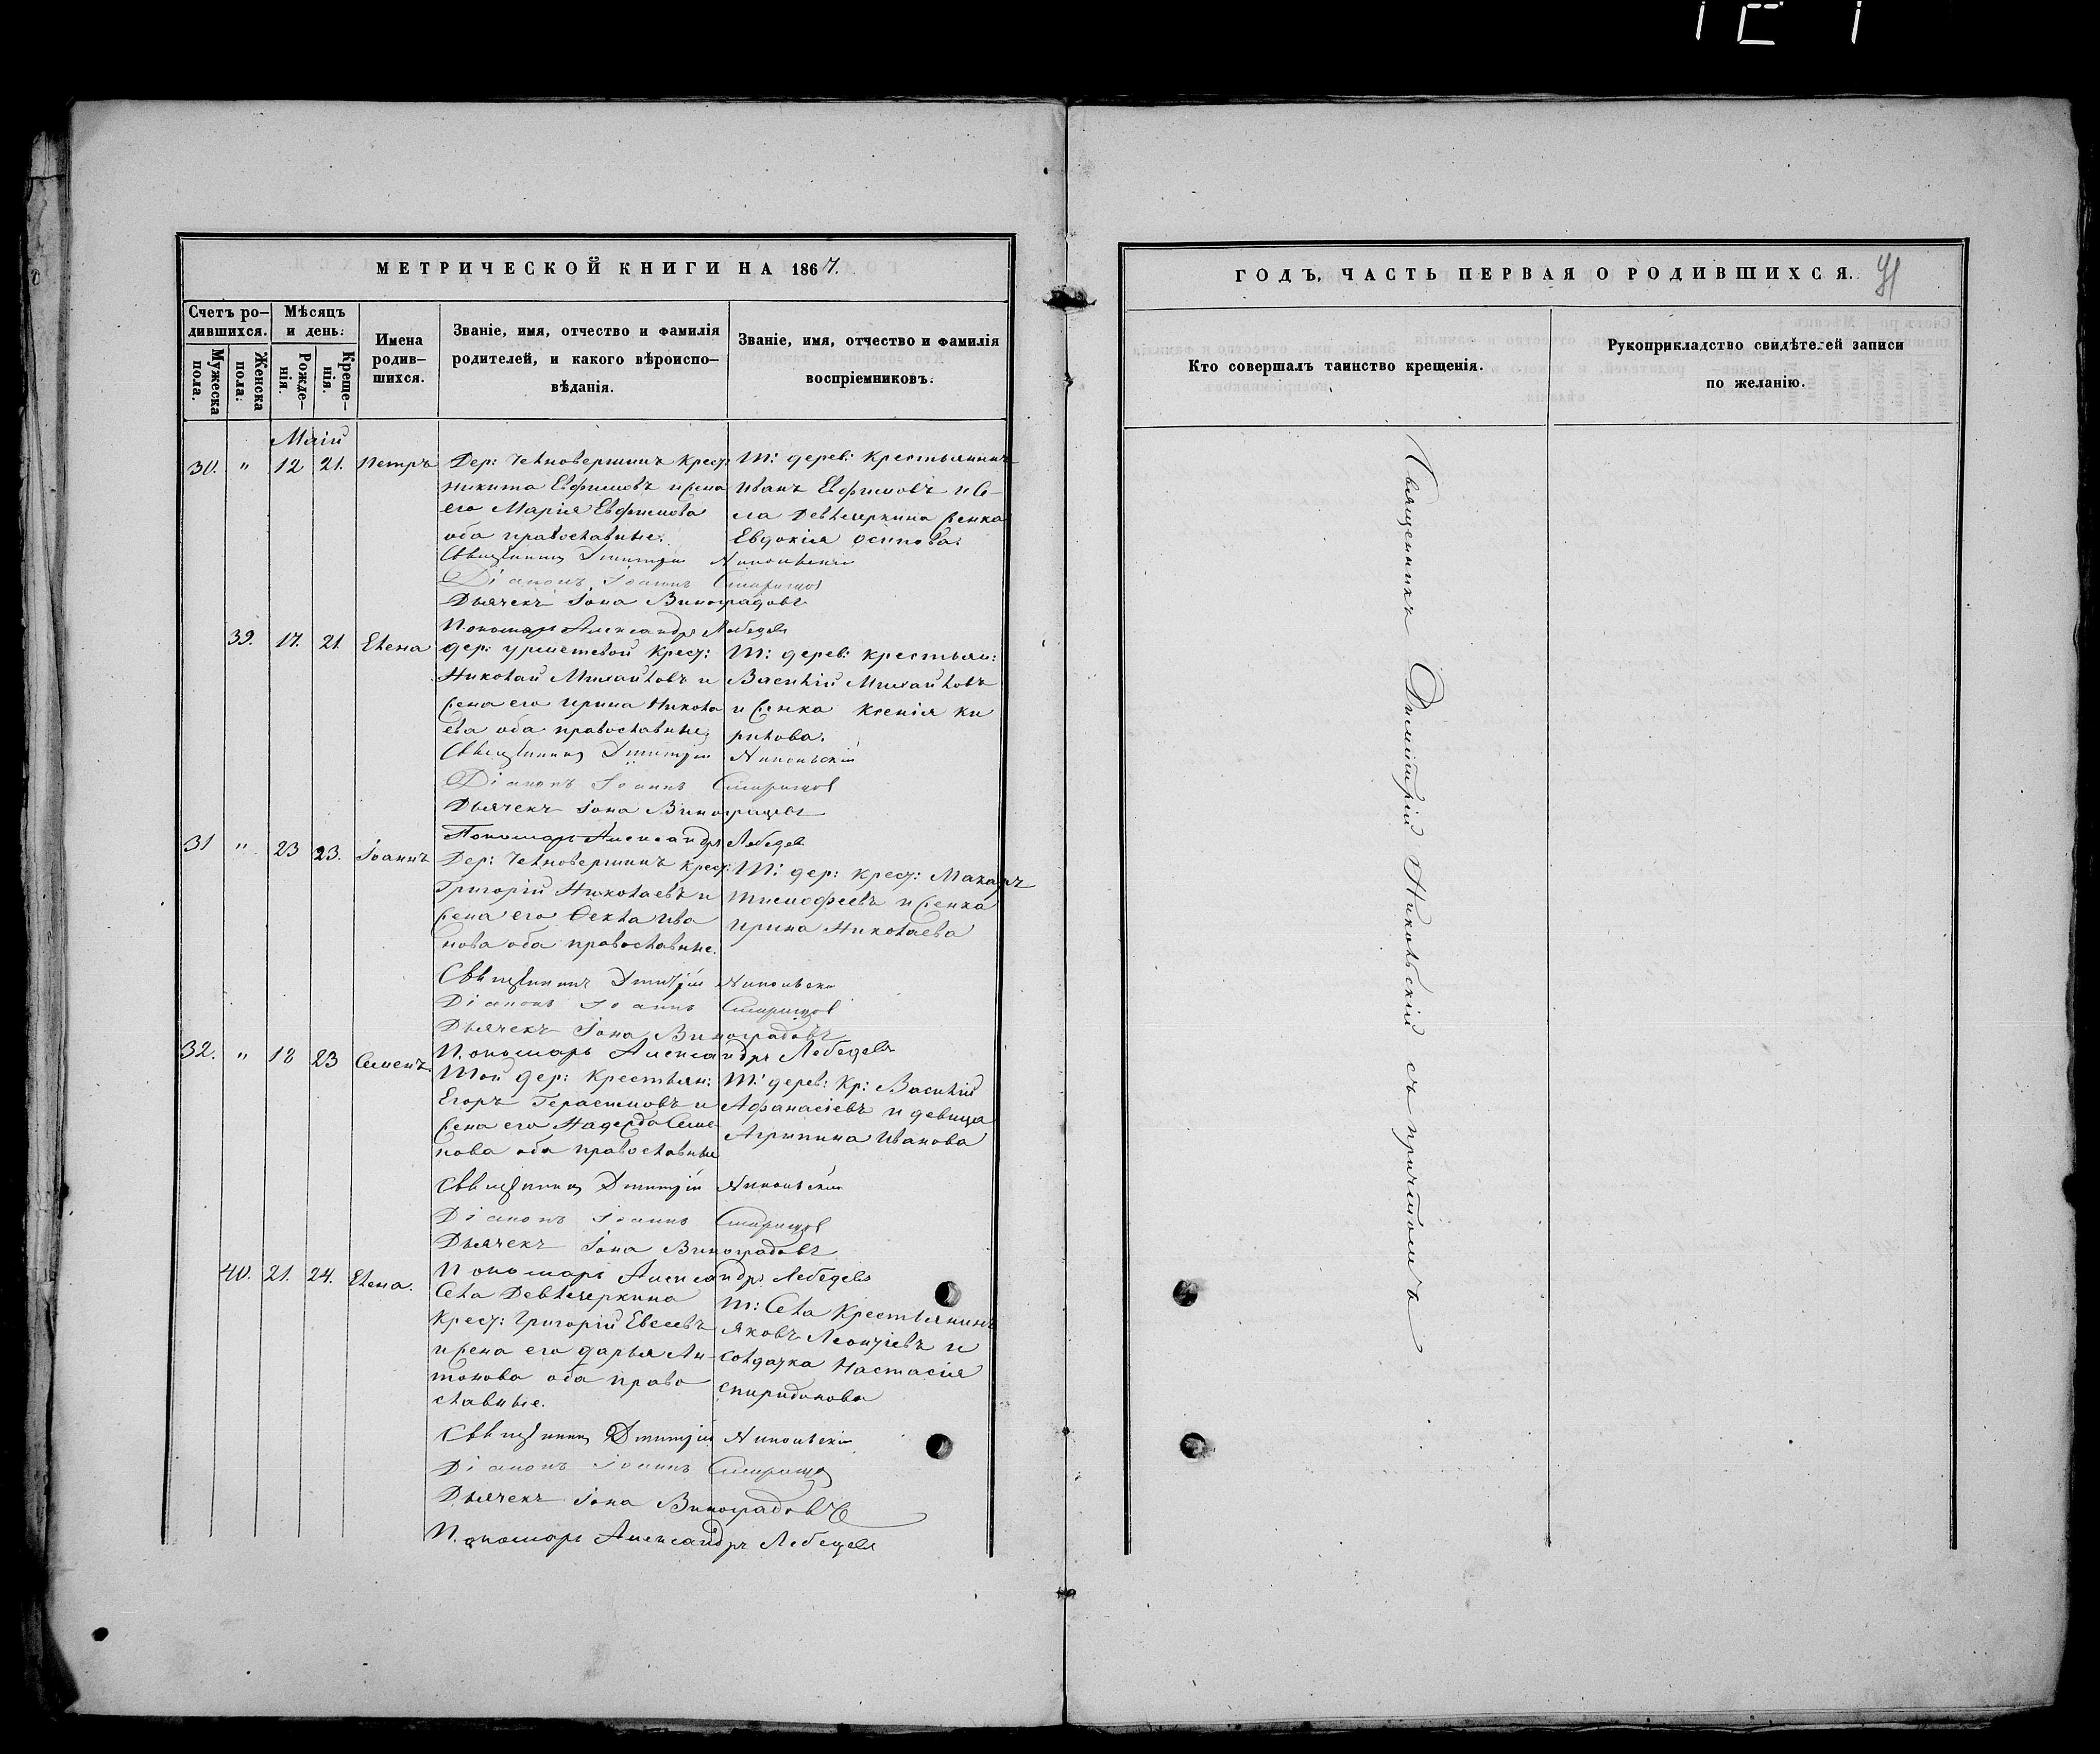 МЕТРИЧЕСКОЙ КНИГИ НА 1867.
Счетъ ро-
дившихся.
Мѣсяцъ
и день:
Мужеска
пола.
Женска
пола.
Рожде-
нія.
Креще-
нія.
Имена
родив-
шихся.
Званіе, имя, отчество и фамилія
родителей, и какого вѣроиспо-
вѣданія.
Званіе, имя, отчество и фамилія
воспріемниковъ.
Маій
30. " 12 21. Петръ
Дер: Челновершинъ Крест:
Никита Евфимовъ и жена
его Марія Евфимова
оба православные.
Т: дерев: Крестьянинъ
Иванъ Евфимовъ и С-
ела Девлезеркина женка
Евдокія Осипова.
Священникъ Димитрій Никольскій
Діаконъ Іоаннъ
Дьячекъ Іона Виноградовъ
Пономарь Александръ Лебедевъ
39. 17. 21 Елена
дер: Урметевой Крест:
Николай Михайловъ и
жена его Ирина Никола
ева оба православные,
Т: дерев: крестьян:
Василій Михайловъ
и женка Ксенія Ки
рилова.
Священникъ Димитрій Никольскій
Діаконъ Іоаннъ
Дьячекъ Іона Виноградовъ
Пономарь Александръ Лебедевъ
31 " 23 23. Іоаннъ
Дер: Челновершинъ крест:
Григорій Николаевъ и
жена его Ѳекла Ива
нова оба православные.
Т: дер: крест: Макаръ
Тимофеевъ и женка
Ирина Николаева
Священникъ Димитрій Никольскій
Діаконъ Іоаннъ
Дьячекъ Іона Виноградовъ
Пономарь Александръ Лебедевъ
32. " 18 23 Семенъ
Той дер: Крестьян:
Егоръ Герасимовъ и
жена его Надежда Семе
нова оба православные
Т: дерев: Кр: Василій
Афанасіевъ и девица
Агрипина Иванова
Священникъ Димитрій Никольскій
Діаконъ Іоаннъ
Дьячекъ Іона Виноградовъ
Пономарь Александръ Лебедевъ
40. 21. 24. Елена.
Села Девлезеркина
Крест: Григорій Евсеевъ
и жена его Дарья Ан-
тонова оба право
славные.
Т: Села Крестьянинъ
Яковъ Леонтіевъ и
солдатка Настасія
Спиридонова
Священникъ Димитрій Никольскій
Діаконъ Іоаннъ
Дьячекъ Іона Виноградовъ
Пономарь Александръ Лебедевъ
ГОДЪ, ЧАСТЬ ПЕРВАЯ О РОДИВШИХСЯ.
Кто совершалъ таинство крещенія.
Рукоприкладство свидѣтелей записи
по желанію.
Священникъ Димитрій Никольскій съ причтомъ